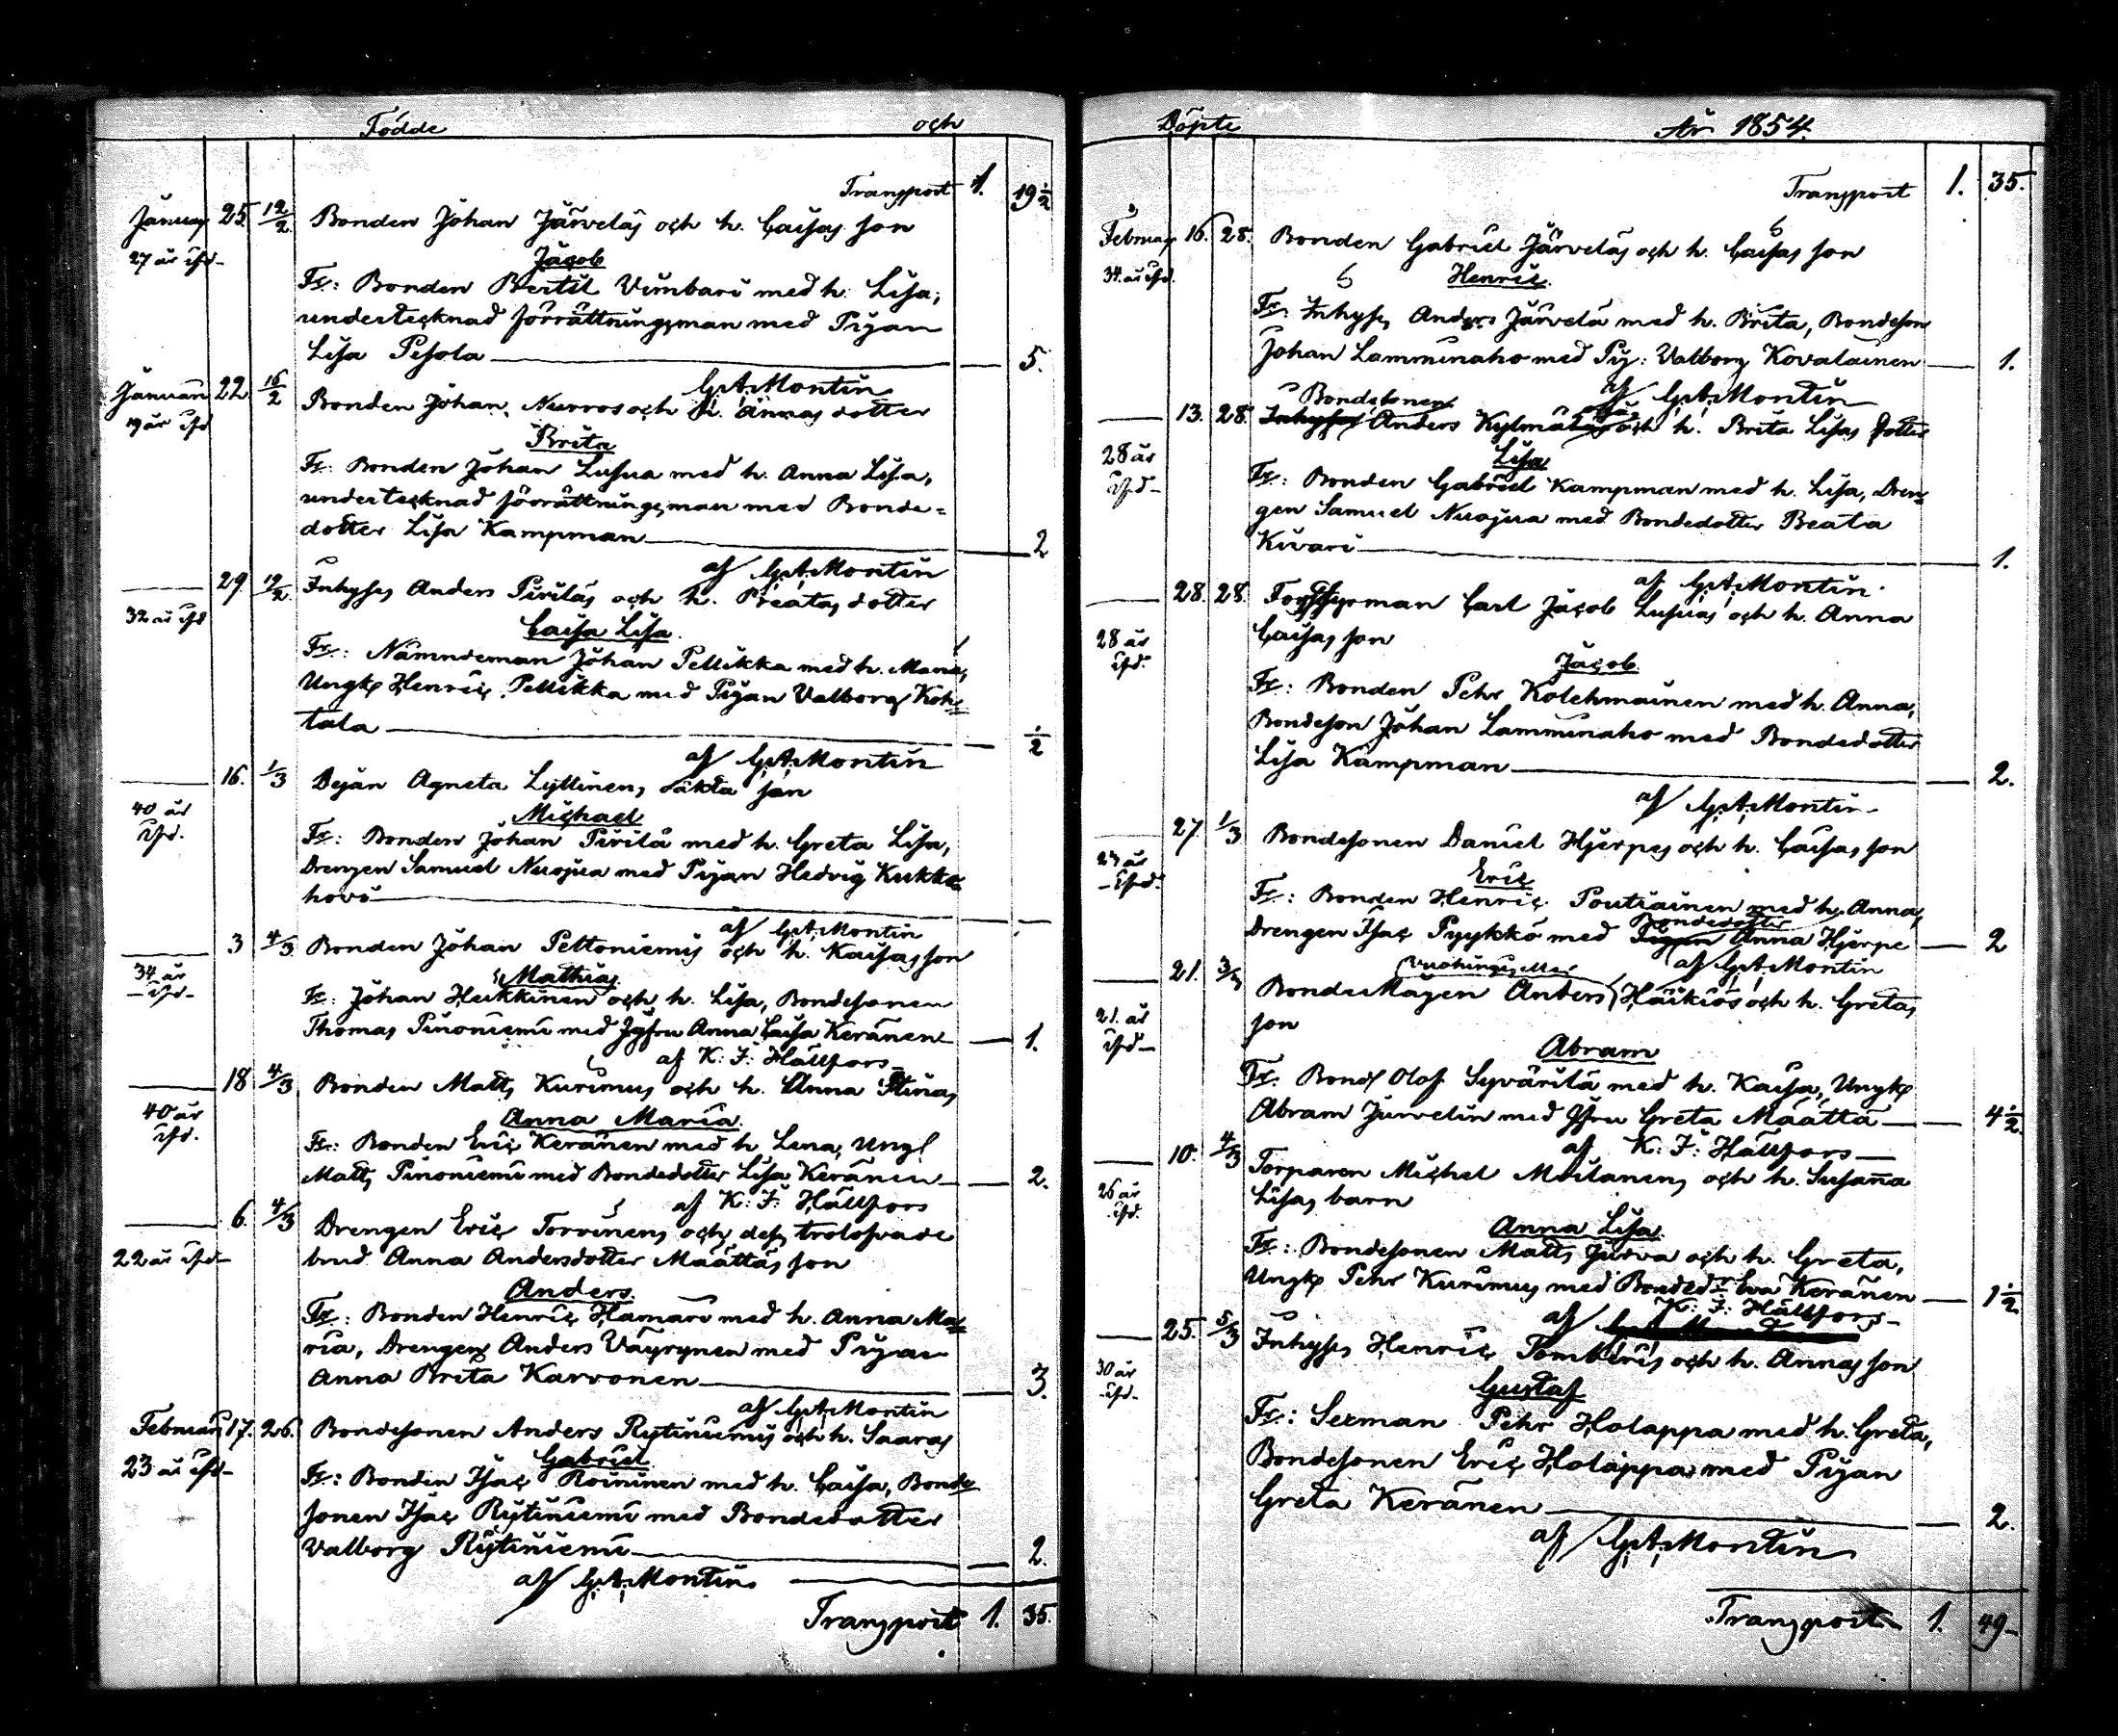 Födde och
Transport 1. 19 1/2
Januari 25. 12/2 Bonden Johan Järveläs och h. Caisas son
27 år
Jacob
Fr: Bonden Bertil Vimbari med h. Lisa,
undertecknad förrättningsman med Pigan
Lisa Pesola 5.
G. A. Montin
Januari 22 16/2 Bonden Johan Nurros och h. Annas dotter
19 år
Brita
Fr: Bonden Johan Lusua med h. Anna Lisa,
undertecknad förrättningsman med Bonde-
dotter Lisa Kampman 2
af G. A. Montin
29. 12/2 Inhyses Anders Pirilas och h. Beatas dotter
32 år
Caisa Lisa
Fr: Nämndeman Johan Pellikka med h. Maria,
Ungk Henric Pellikka med Pigan Valborg Koh-
tala 1/2
af G. A. Montin
16. 1/3 Pigan Agneta Lyttinens oäkta son
40 år
Michael
Fr: Bonden Johan Pirilä med h. Greta Lisa,
Drengen Samuel Nuojua med Pigan Hedvig Kukko-
hovi
af G. A. Montin
3 4/3 Bonden Johan Peltoniemis och h. Kaisas son
34 år
Mathias
Fr: Johan Heikkinen och h. Lisa, Bondesonen
Thomas Pinoniemi med Jgfru Anna Caisa Keränen 1.
af K. F. Hällfors
18 4/3 Bonden Matts Kurimus och h. Anna Stinas
40 år
Anna Maria
Fr: Bonden Eric Keränen med h Lena, Ungl
Matts Pinoniemi med Bondedotter Lisa Keränen 2.
af K. F. Hällfors
6. 4/3 Drengen Eric Torvinens och dess trolofvade
22 år
brud Anna Andersdotter Määttäs son
Anders
Fr: Bonden Henric Hamari med h. Anna Ma-
ria, Drengen Anders Väyrynen med Pigan
Anna Brita Karvonen 3.
af G. A. Montin
Februari 17. 26. Bondesonen Anders Rytiniemis och h. Saaras
23 år
Gabriel
Fr: Bonden Isac Roininen med h. Caisa, Bonde-
sonen Isac Rytiniemi med Bondedotter
Valborg Rytiniemi 2.
af G. A. Montin
Transport 1. 35.
Döpte År 1854.
Transport 1. 35.
Februari 16. 28. Bonden Gabriel Järveläs och h. Caisas son
34 år
Henric
Fr: Inhyses Anders Järvelä med h. Brita, Bondeson
Johan Lamminaho med Pig: Valborg Kovalainen 1.
af G. A. Montin
Bondesonen
13. 28. Inhyses Anders Kylmä och h. Brita Lisas dotter
28 år
Lisa
Fr: Bonden Gabriel Kampman med h. Lisa, Dren-
gen Samuel Nuojua med Bondedotter Beata
Kivari 1.
af G. A. Montin
28. 28. Forstyrman Carl Jacob Lusuas och h. Anna
28 år
Caisas son
Jacob
Fr: Bonden Pehr Kolehmainen med h. Anna,
Bondeson Johan Lamminaho med Bondedotter
Lisa Kampman 2.
af G. A. Montin
27. 1/3 Bondesonen Daniel Hjerpes och h. Caisas son
Eric
Fr: Bonden Henric Poutiainen med h. Anna,
Bondedotter
Drengen Isac Pyykkö med Pigan Anna Hjerpe 2
af G. A. Montin
21. 3/3 Bondemågen Anders Häikiös och h. Gretas
21. år
son
Abram
Fr. Bond Olof Syvärilä med h. Kaisa, Ungk
Abram Jurvelin med Jfru Greta Määttä 4 1/2
af K. F. Hällfors
10. 4/3 Torparen Michel Moilanens och h. Susanna
26 år
Lisas barn
Anna Lisa
Fr: Bondesonen Matts Jurva och h. Greta,
Ungk Pehr Kurimus med Bonded:r Eva Keränen 1 1/2
K. F. Hällfors
af
25. 5/3 Inhyses Henric Pomberis och h. Annas son
30 år
Gustaf
Fr: Sexman Pehr Holappa med h. Greta,
Bondesonen Eric Holappa med Pigan
Greta Keränen 2.
af G. A. Montin
Transport 1. 49